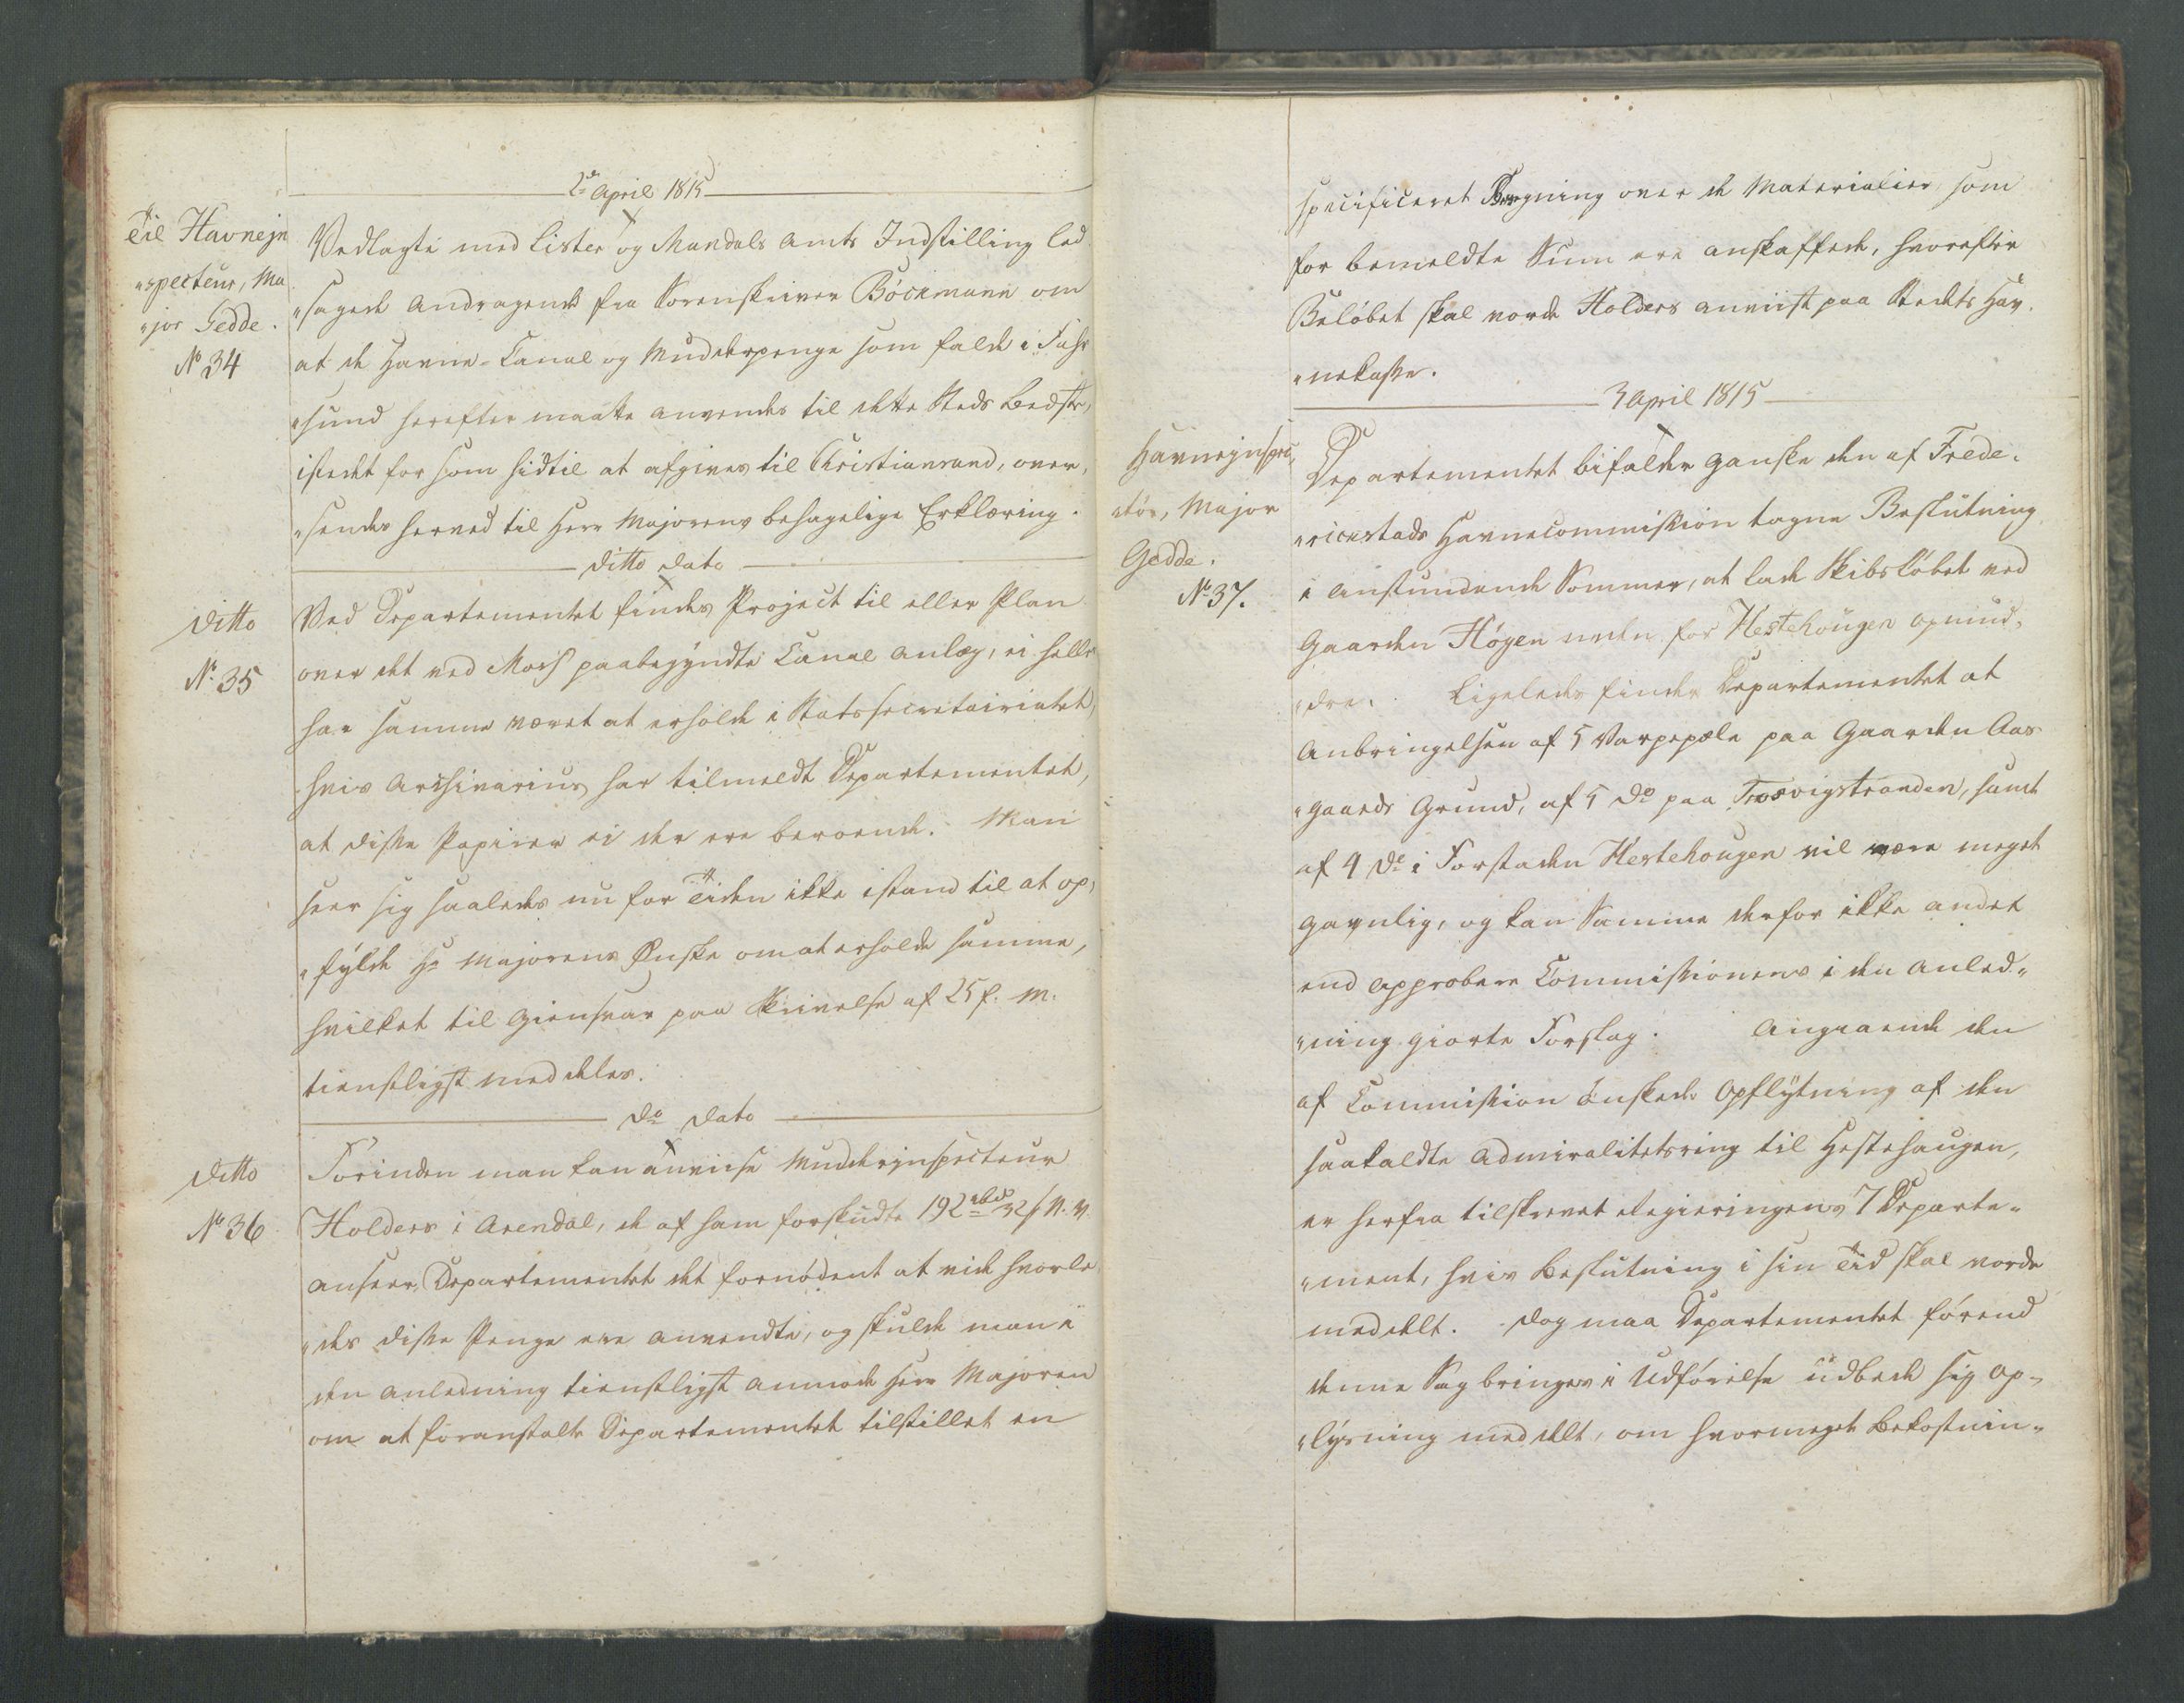 2de April 1815
Til HavneJn
„specteur, Ma
„jor Gedde.
No 34
Vedlagte med Lister og Mandals Amts Indstilling led
„sagede Andragende fra Sorenskriver Böckmann om
at de Havne-Canal og Mudderpenge som falde i Fahr
„sund herefter maatte anvendes til dette Steds Bedste,
istedet for som hidtil at afgives til Christiansand, over,
„sendes herved til Herr Majorens behagelige Erklæring.
ditto dato
ditto
No 35
Ved Departementet findes Project til eller Plan
over det ved Moss paabegÿndte Canal Anlæg, ei heller
har samme været at erholde i Statssecretairiatet,
hvis Archivarius har tilmeldt Departementet,
at disse Papirer ei der ere beroende. Man
seer sig saaledes nu for Tiden ikke istand til at op,
„fÿlde Hr Majorens Ønske om at erholde samme,
hvilket til Giensvar paa Skrivelse af 25 f. M.
tienstligst meddeles.
do dato
ditto
No 36
Forinden man kan anviise Mudderinspecteur
Holders i Arendal, de af ham forskudte 192 rbd 32 s N. V.
anseer Departementet det fornödent at vide hvorle
„des disse Penge ere anvendte, og skulde man i
den Anledning tienstligst anmode Herr Majoren
om at foranstalte Departementet tilstillet en
specificeret Regning over de Materialier som
for bemeldte Sum ere anskaffede, hvorefter
Belöbet skal vorde Holders anviist paa Stedets Hav.
„nekasse.
3 April 1815
Havneinspec,
„tör, Major
Gedde.
No 37.
Departementet bifalder ganske den af Frede.
„ricstads Havnecommission tagne Beslutning
i anstundende Sommer, at lade Skibslöbet ved
Gaarden Högen neden for Hestehougen opmud„
„dre. Ligeledes finder Departementet at
Anbringelsen af 5 Varpepæle paa Gaarden Aas
„gaards Grund, af 5 do paa Trosvigstranden, samt
af 4 do i Forstaden Hestehougen vil være meget
gavnlig, og kan Samme derfor ikke andet
end approbere Commissionens i den Anled„
„ning giorte Forslag. Angaaende den
af Commission önskede Opflÿtning af den
saakaldte Admiralitetsring til Hestehaugen,
er herfra tilskrevet Regieringens 7 Departe„
„ment, hvis Beslutning i sin Tid skal vorde
meddelt. Dog maa Departementet förend
denne Sag bringes i Udförelse udbede sig Op„
„lÿsning meddelt, om hvormeget Bekostnin„